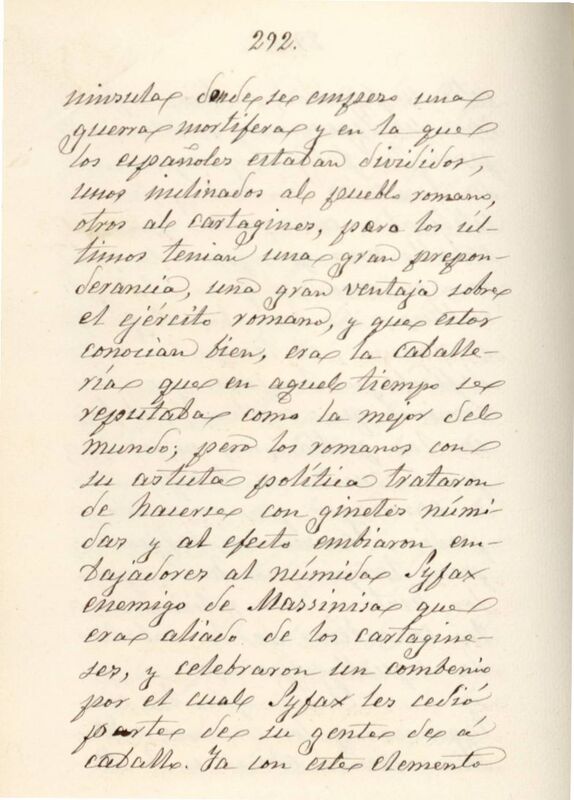 292.
ninsula donde se empezo una
guerra mortifera y en la que
los españoles estaban divididos,
unos inclinados al pueblo romano,
otros al cartagines, pero los úl-
timos tenian una gran prepon-
derancia, una gran ventaja sobre
el ejército romano, y que estos
conocian bien, era la caballe-
ría que en aquel tiempo se
reputaba como la mejor del
mundo; pero los romanos con
su astuta política trataron
de hacerse con ginetes númi-
das y al efecto embiaron em-
bajadores al númida Syfax
enemigo de Massinisa que
era aliado de los cartagine-
ses, y celebraron un combenio
por el cual Syfax les cedió
parte de su gente de á
caballo. Ya con este elemento